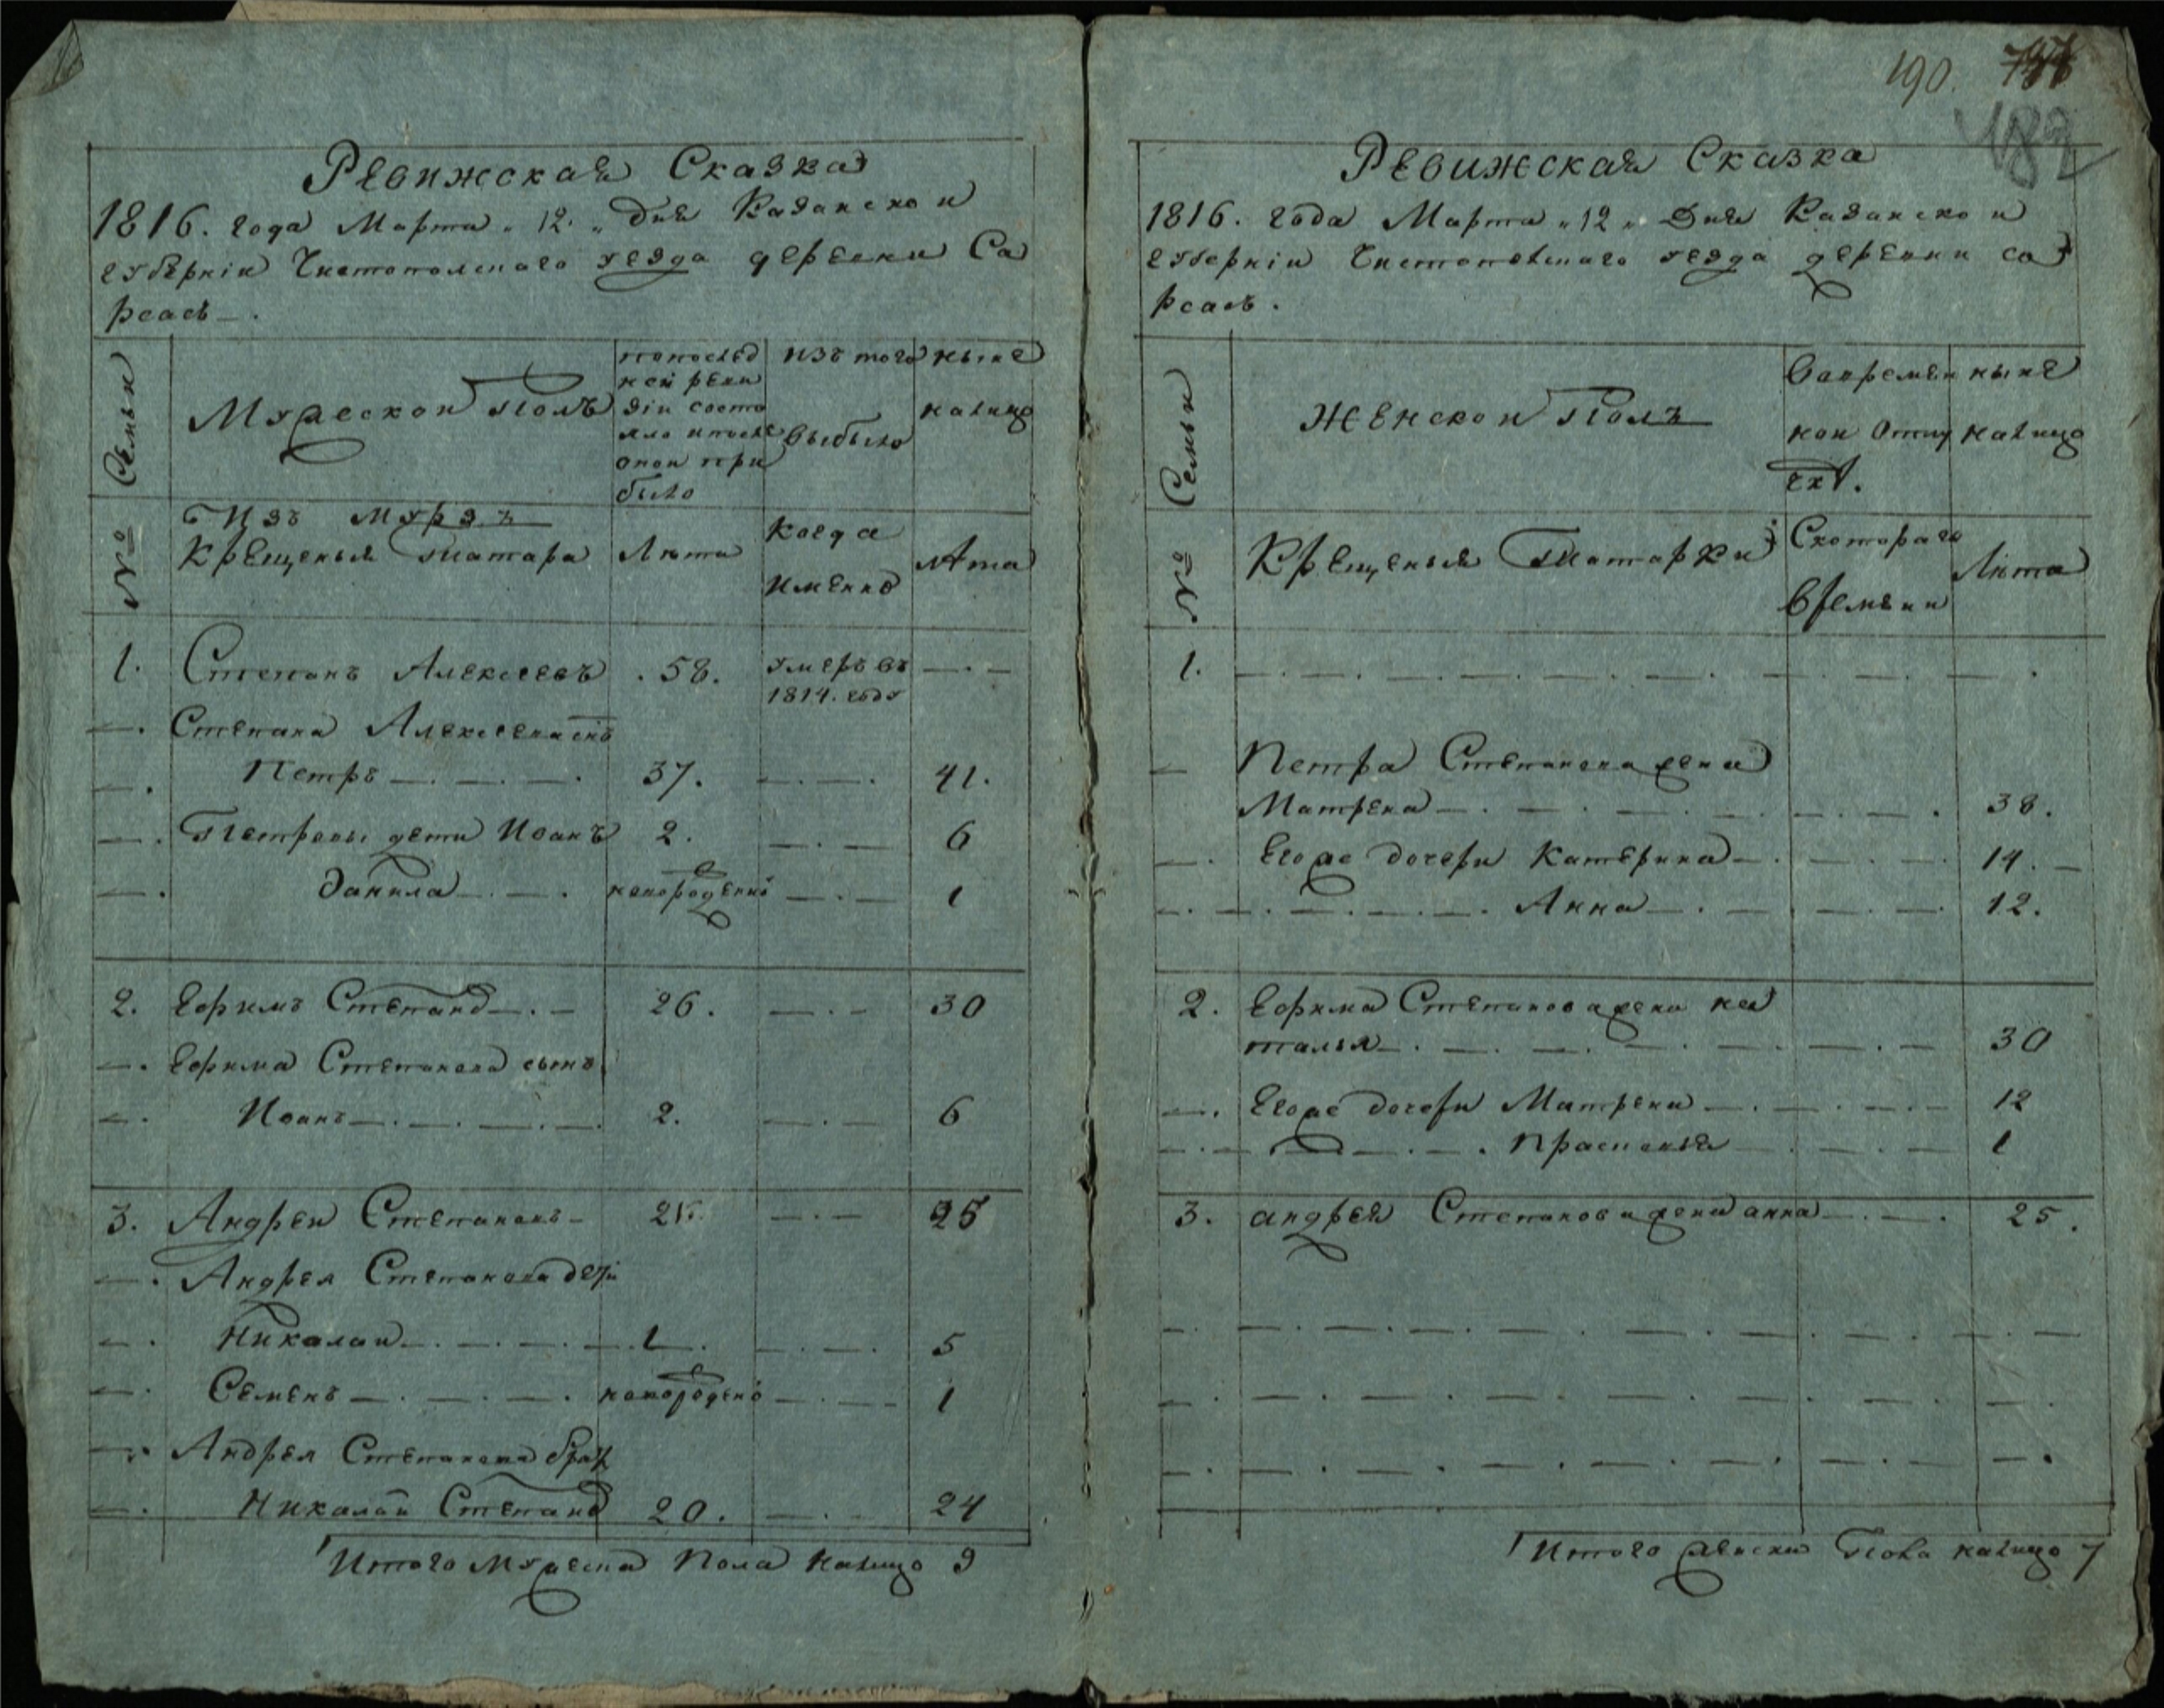 190.
182
Ревижская Сказка
1816. года Марта „ 12. „ дня Казанскои
губернiи Чистополскаго уезда деревни Са
рсасъ
Семьи
Мужескои Полъ
попослед
неи реви
зiи состо
яло ипосле
онои при
было
изъ того
выбыло
ныне
налицо
№
Изъ мурзъ
Крещеныя татара
Лѣта
когда
имянно
лѣта
1. Степанъ Алексеевъ . 58. умеръ въ
1814. году
Степана Алексеева снъ
Петръ 37. 41.
Петровы дети Иванъ 2. 6
Данила новорожденъ 1
2. Ефимъ Степанов 26. 30
Ефима Степанова сынъ
Иванъ 2. 6
3. Андреи Степановъ 21. 25
Андрея Степанова дети
Николаи 1 5
Семенъ новорожденъ 1
Андрея Степанова брат
Николаи Степанов 20. 24
Итого мужеска Пола налицо 9
Ревижская Сказка
1816. года Марта „ 12 „ Дня Казанскои
губернiи Чистополскаго уезда деревни са
рсасъ.
Семьи
Женскои Полъ
вовремян
нои отлуч
кѣ.
ныне
налицо
№
Крещеныя Татарки
Скотораго
времяни
Лѣта
1.
Петра Степанова жена
Матрена 38.
Егоже дочери Катерина 14.
Анна 12.
2. Ефима Степанова жена на
талья 30
Егоже дочери Матрена 12
Прасковья 1
3. андрея Степанова жена анна 25.
Итого женска Пола налицо 7